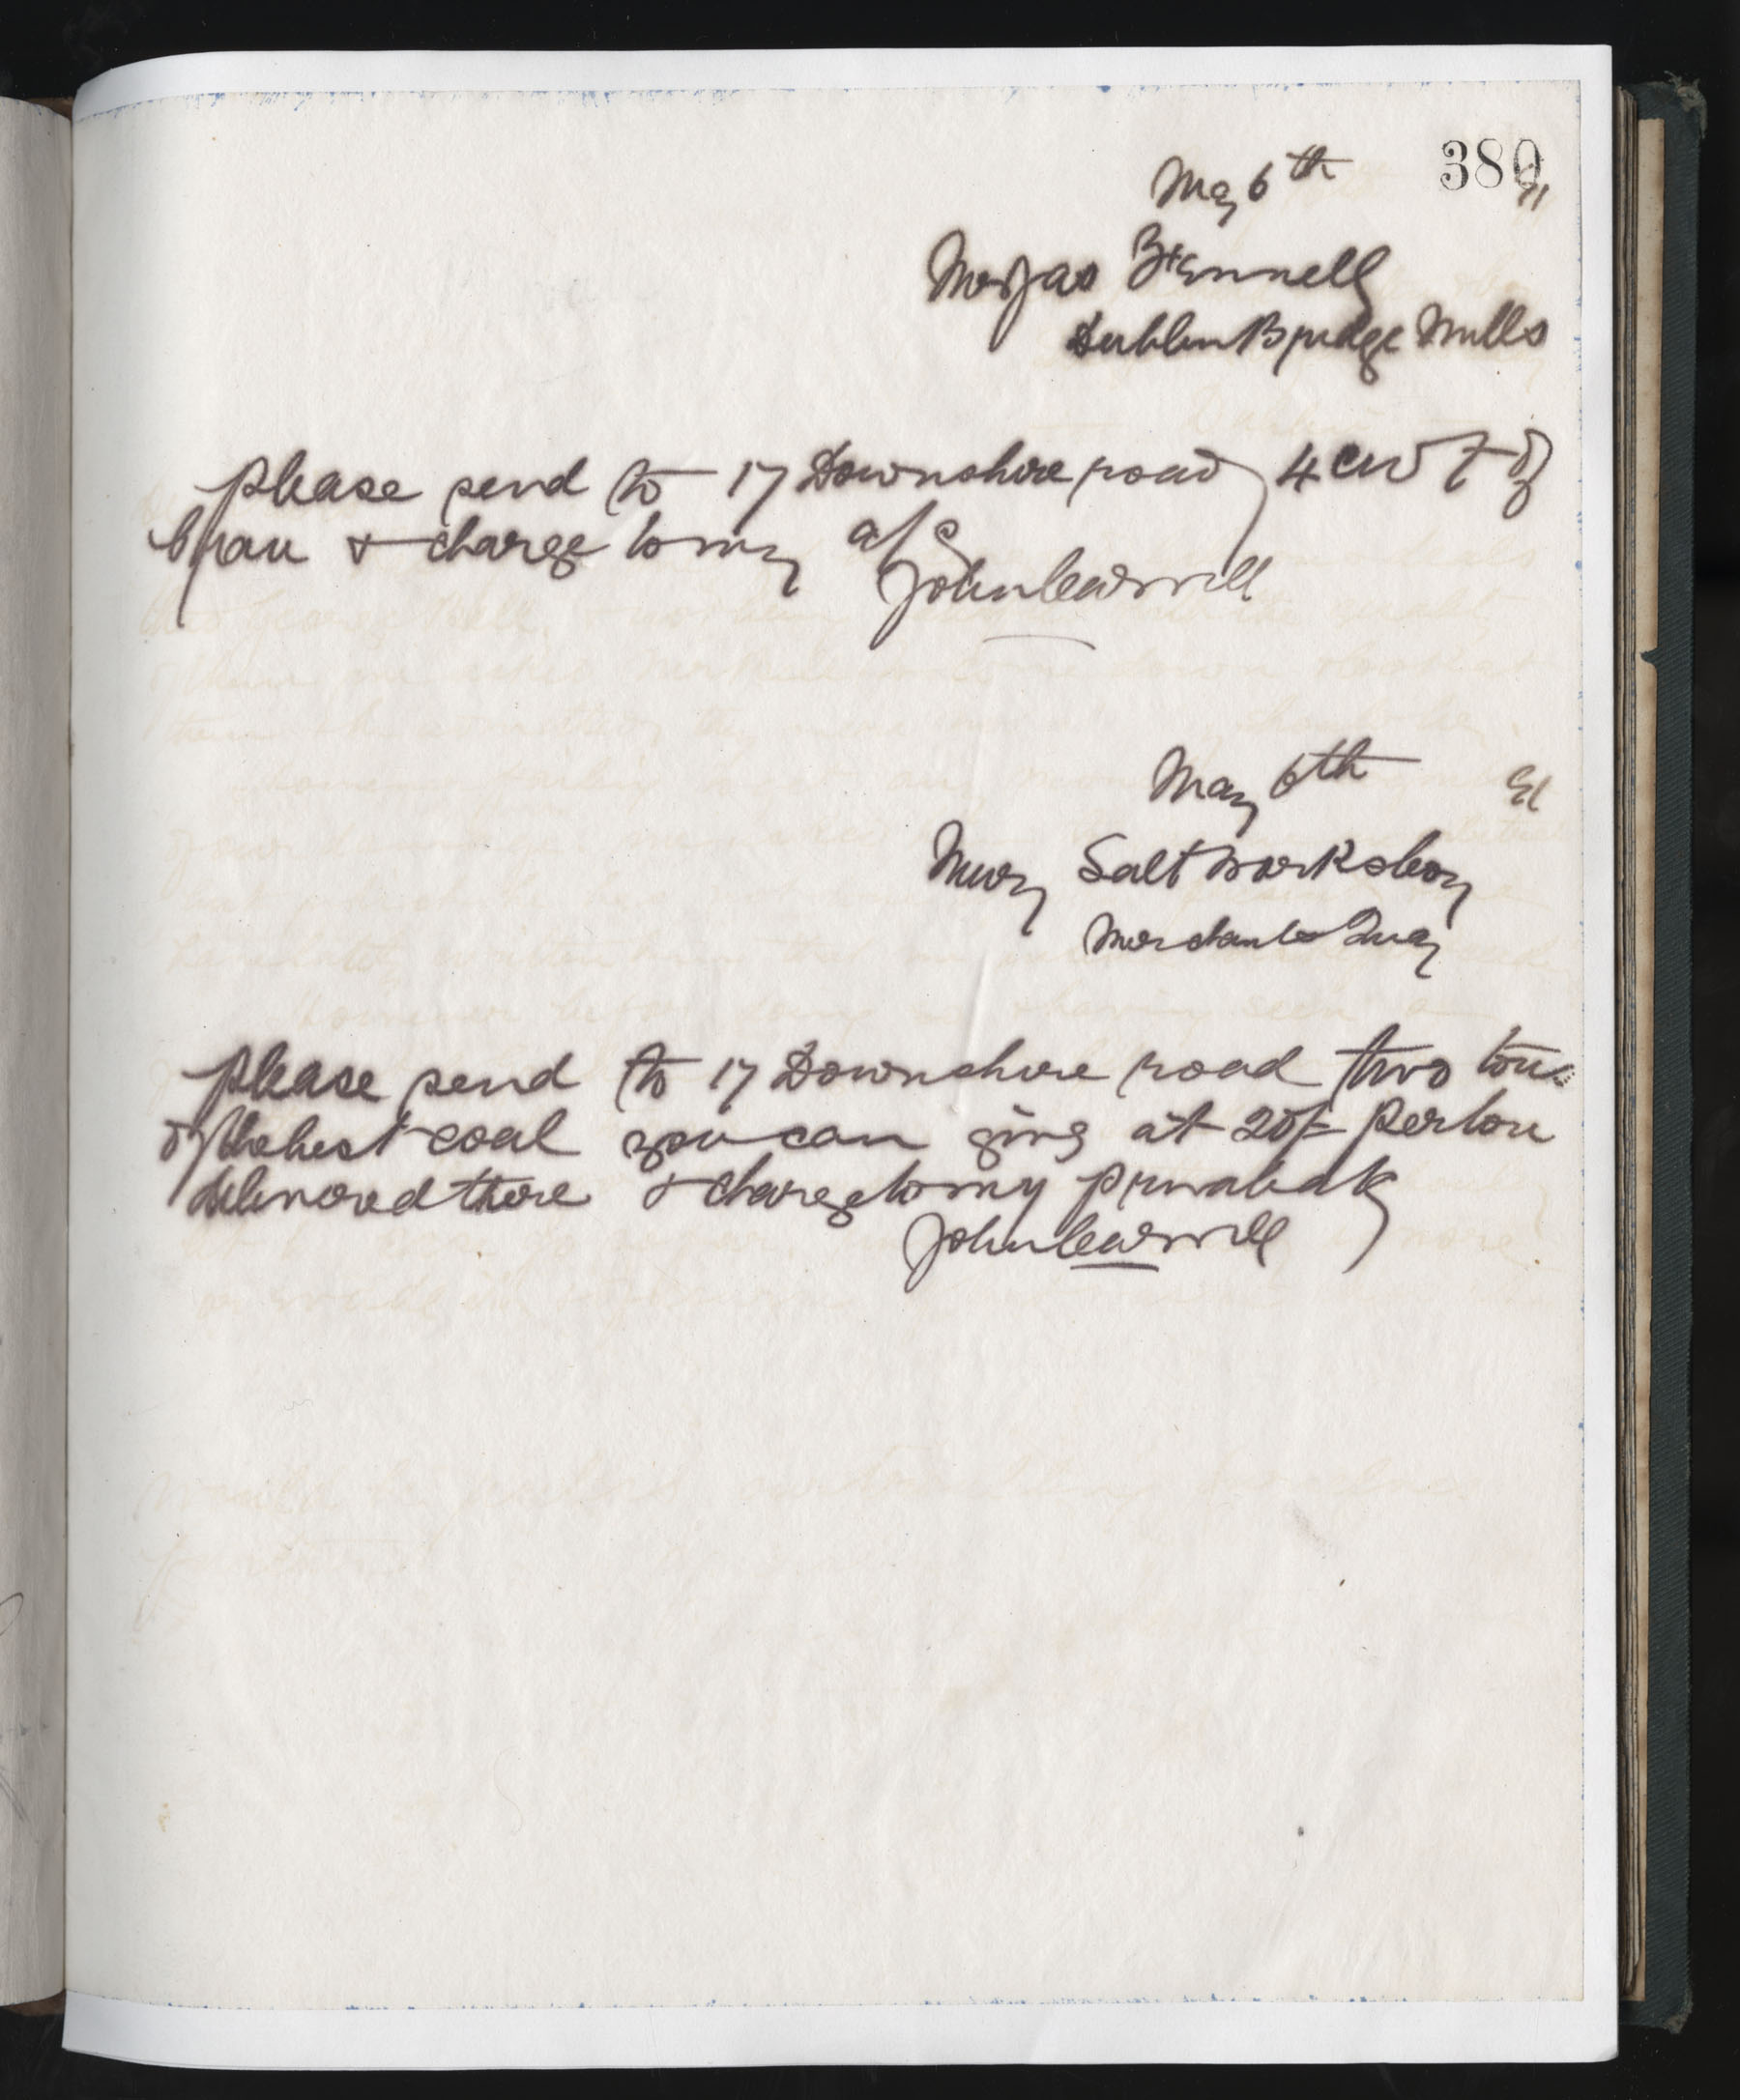 380
May 6th 91
Mr Jas Fennell
Dublin Bridge Mills
please send to 17 Downshire road 4 cwt of
bran & charge to my a/c
John Carvill
May 6th 91
Newry Salt Works Coy
Merchants Quay
please send to 17 Downshire road two tons
of the best coal you can give at 20/- per ton
delivered there & charge to my private a/c
John Carvill